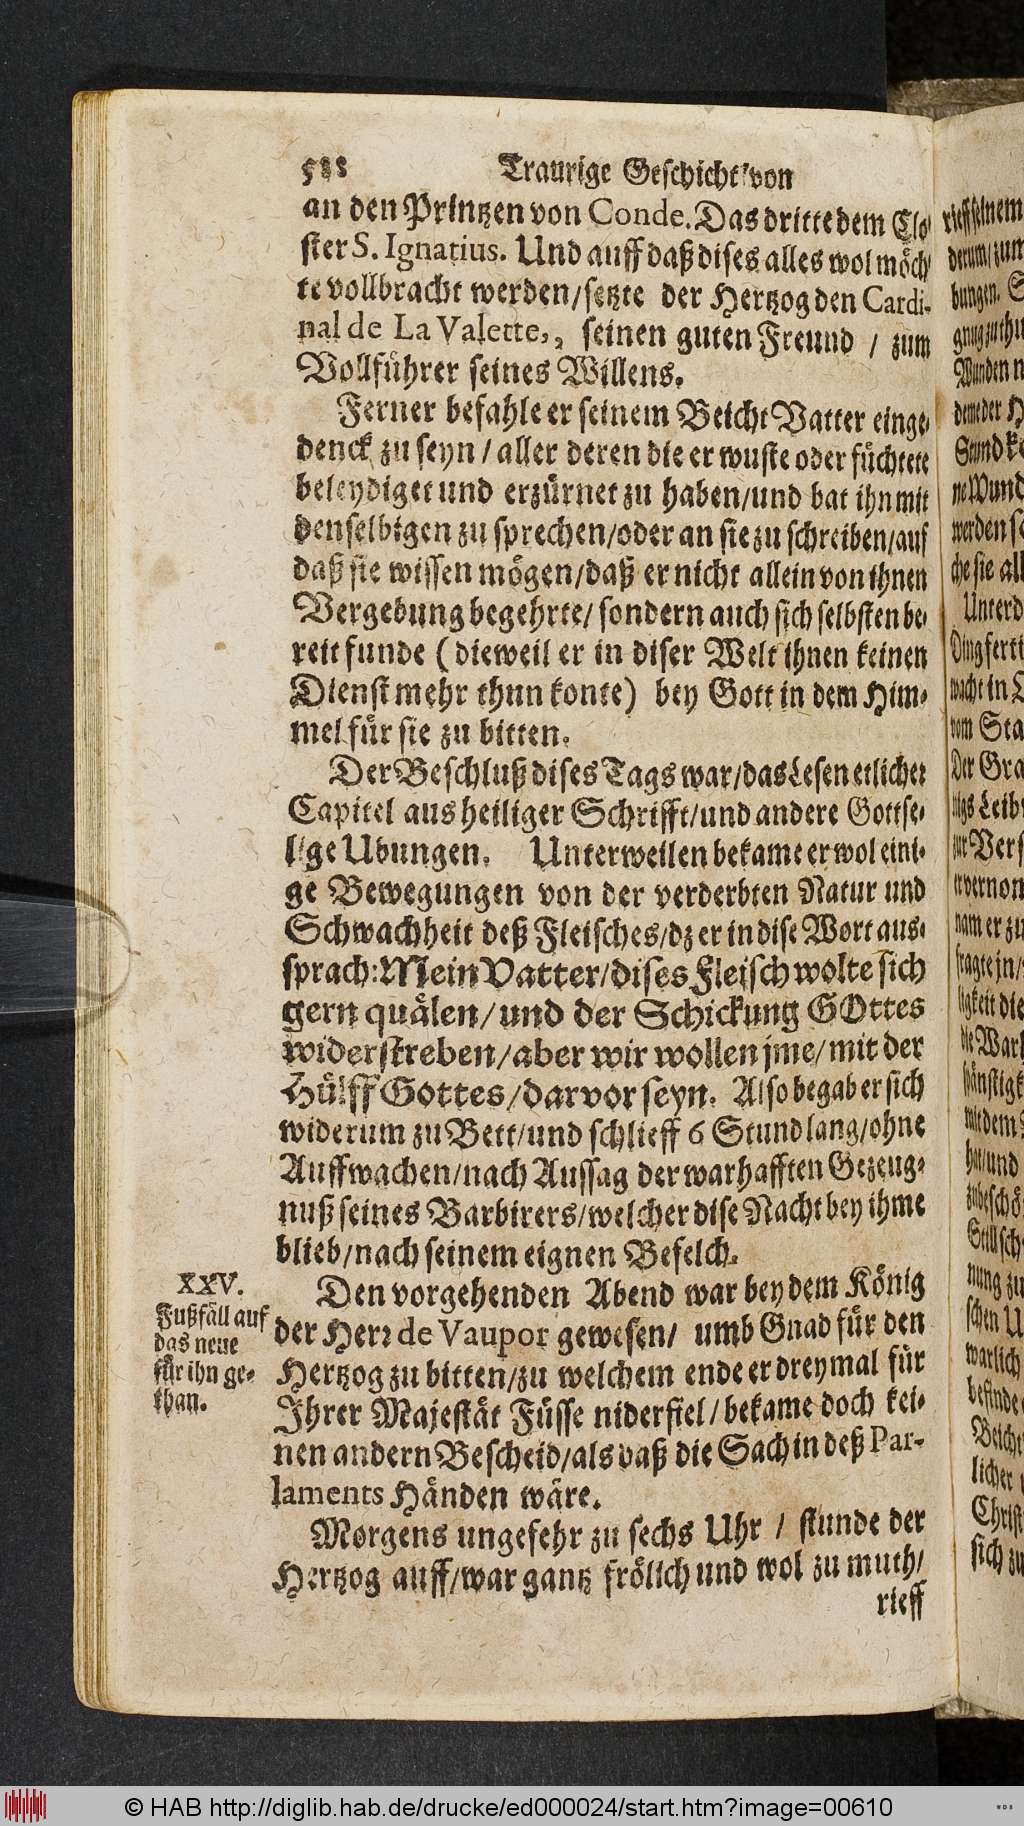 588 Traurige Geschicht/von
an den Printzen von Conde. Das dritte dem Clo-
ster S. Ignatius. Und auff daß dises alles wol möch
te vollbracht werden/setzte der Hertzog den Cardi-
nal de La Valette,, seinen guten Freund / zum
Vollführer seines Willens.
Ferner befahle er seinem Beicht Vatter einge-
denck zu seyn / aller deren die er wuste oder füchtete
beleydiget und erzürnet zu haben/und bat ihn mit
denselbigen zu sprechen/oder an sie zu schreiben/auf
daß sie wissen mögen/daß er nicht allein von ihnen
Vergebung begehrte/ sondern auch sich selbsten be-
reit funde ( dieweil er in diser Welt ihnen keinen
Dienst mehr thun konte) bey Gott in dem Him-
mel für sie zu bitten.
Der Beschluß dises Tags war/das Lesen etlicher
Capitel aus heiliger Schrifft/und andere Gottse-
lige Ubungen. Unterweilen bekame er wol eini-
ge Bewegungen von der verderbten Natur und
Schwachheit deß Fleisches/dz er in dise Wort aus-
sprach:Mein Vatter/dises Fleisch wolte sich
gern quälen/und der Schickung GOttes
widerstreben/aber wir wollen jme/mit der
Hülff Gottes/darvor seyn. Also begab er sich
widerum zu Bett/und schlieff 6 Stund lang/ohne
Auffwachen/nach Aussag der warhafften Gezeug-
nuß seines Barbirers/welcher dise Nacht bey ihme
blieb/nach seinem eignen Befelch.
XXV.
Fußfäll auf
das neue
für ihn ge-
than.
Den vorgehenden Abend war bey dem König
der Herr de Vaupor gewesen/ umb Gnad für den
Hertzog zu bitten/zu welchem ende er dreymal für
Ihrer Majestät Füsse niderfiel/bekame doch kei-
nen andern Bescheid/als daß die Sach in deß Par-
laments Händen wäre.
Morgens ungefehr zu sechs Uhr / stunde der
Hertzog auff/war gantz frölich und wol zu muth/
rieff
© HAB http://diglib.hab.de/drucke/ed000024/start.htm?image=00610